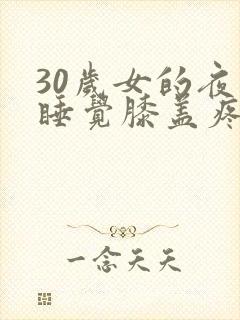 30歲女的夜
睡覺膝盖疼
一念天天